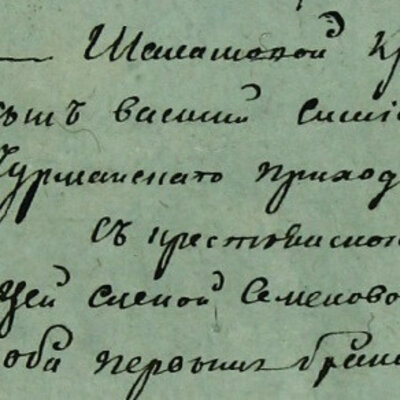 Шалашовой Кр
сынъ василий
Чурманскаго приход
Съ крестьянскою
цей Еленой Семеново
оба первымъ брак